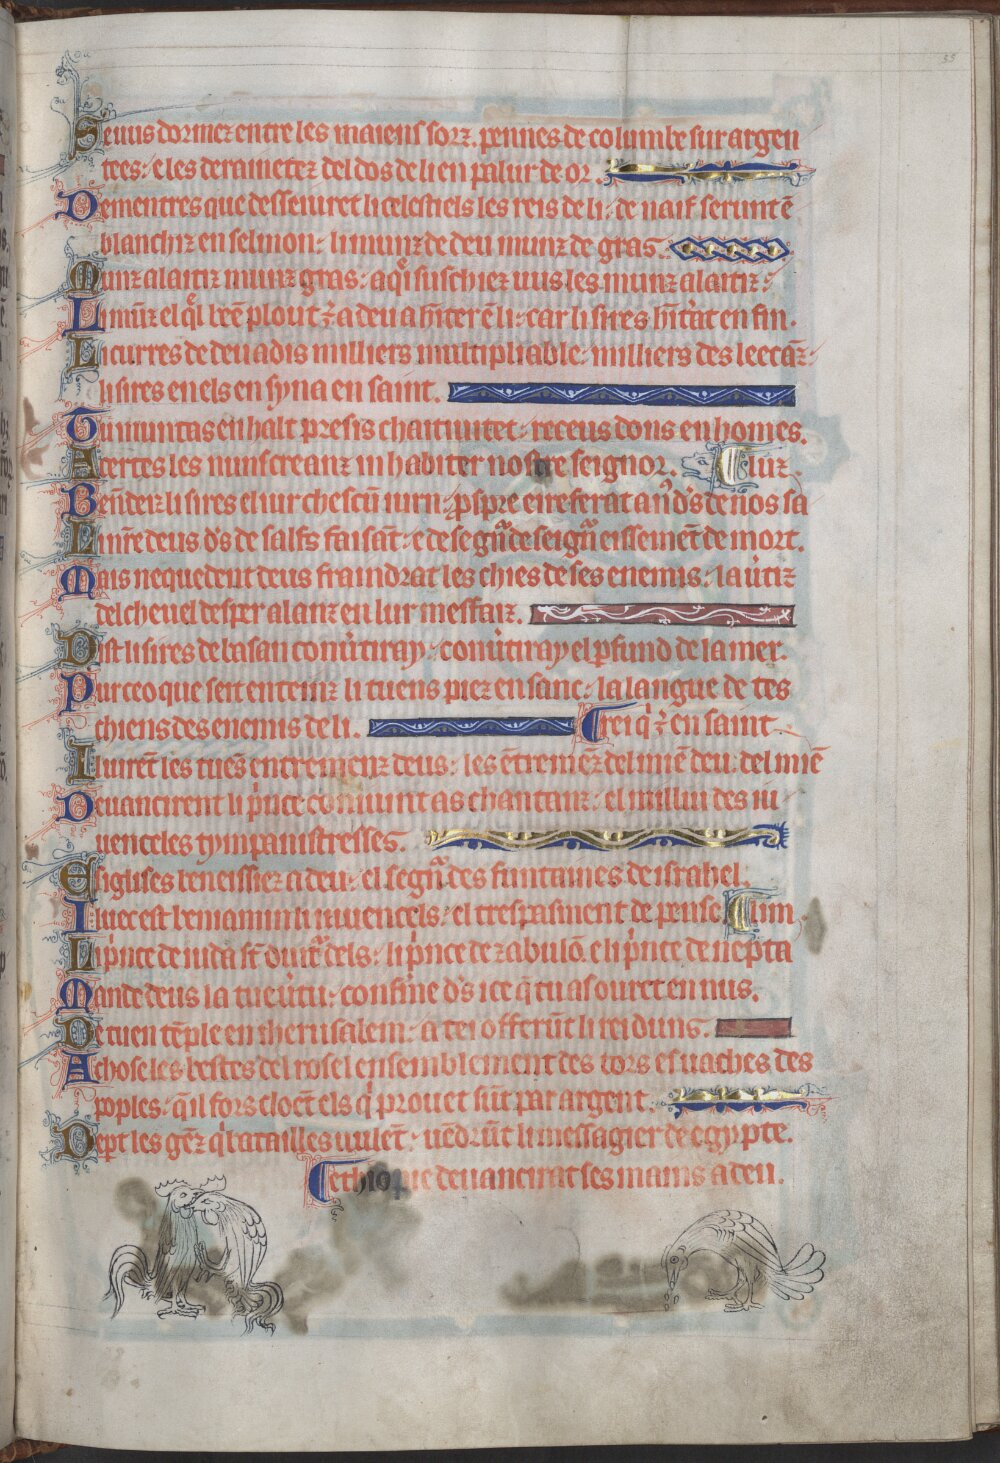 Se vus dormez entre les maiens sorz. pennes de columbe sur argen
tees: e les deraimetez del dos de li en palur de or.
Dementres que desseiuret li celestiels les reis de li: de naif serunt ē
blanchiz en selmon: li munz de deu munz de gras.
Munz alaitiz munz gras: a qi suschiez uus les munz alaitiz:
Li munz el ql bee plout a deu a hiter ē li: car li sires hit'at en fin.
Li curres de deu a dis milliers multipliable: milliers des leecāz:
li sires en els en syna en saint.
Tu muntas en halt presis chaitiuitet: receus dons en homes.
Acertes les nunscreanz inhabiter nostre seignor. Cluz.
Beneiz li sires el iur chescū iurn: pspre eire ferat a n d's de nos sa
Li nre deus d's de salfs faisāt: e de segn de seign eissemēt de mort.
Mais nequedent deus fraindrat les chies de ses enemis: la utiz
del cheuel desper alanz en lur mesfaiz.
Dist li sires de basan conutiray: conutiray el pfund de la mer.
Pur ceo que seit enteinz li tuens piez en sanc: la langue de tes
chiens des enemis de li. Crei q en saint.
Il uirēt les tues entremenz deus: les ētremēz del miē deu: del miē
Deuancirent li pnce coniuint as chantanz: el milliu des iu
uenceles tympanistresses.
Esiglises beneissiez a deu: el segn des funtaines de israhel.
Iluec est beniamin li iuuencels: el trespasment de pense. Clim
Li pnce de iuda st duit dels: li pnce de zabulō. e li pnce de nepta
Mande deus la tue utu: confine d's ice q tu as ouret en nus.
De tuen tēple en iherusalem: a tei offerūt li rei duns.
Achose les bestes del rosel ensemblement des tors es uaches des
poples: q il fors cloēt els q prouet sūt par argent.
Dept les gēz q batailles uulēt: uēdrūt li messagier de egypte.
Cethiopie deuancirat ses mains a deu.